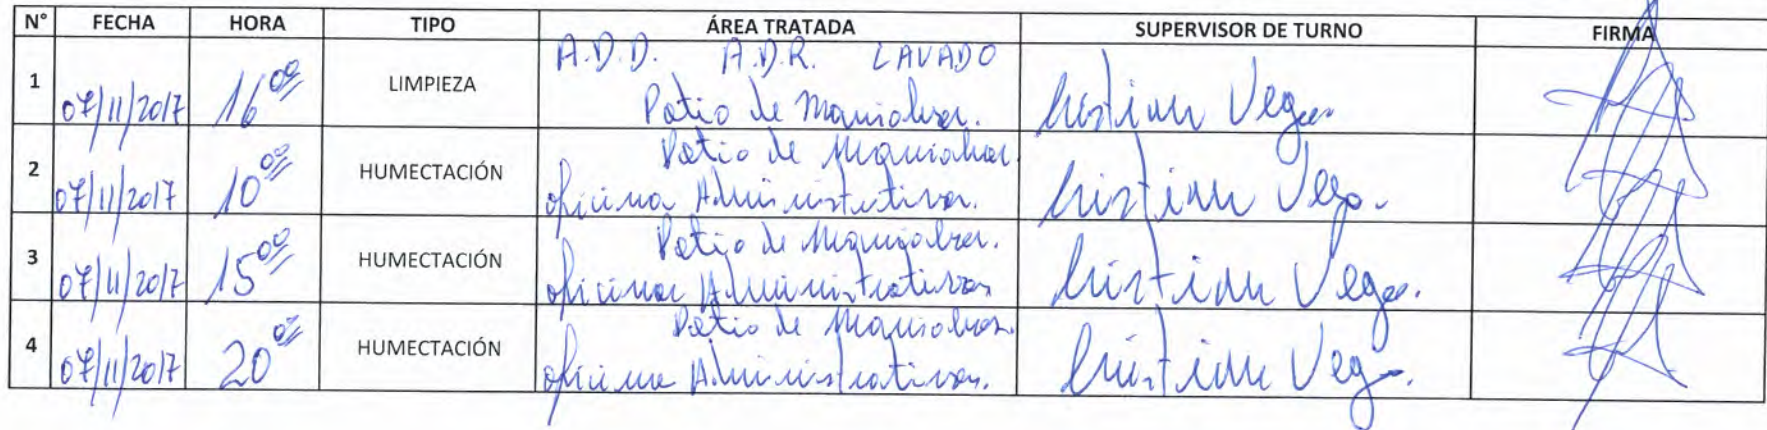 N° FECHA HORA TIPO ÁREA TRATADA SUPERVISOR DE TURNO FIRMA
1 07/11/2017 16 00 LIMPIEZA A.D.D. A.D.R. LAVADO
Patio de Maniobras. Cristian Vega.
2 07/11/2017 10 00 HUMECTACIÓN Patio de Maniobras
oficinas Administrativas. Cristian Vega.
3 07/11/2017 15 00 HUMECTACIÓN Patio de Maniobras.
oficinas Administrativas Cristian Vega.
4 07/11/2017 20 00 HUMECTACIÓN Patio de Maniobras
oficinas Administrativas. Cristian Vega.